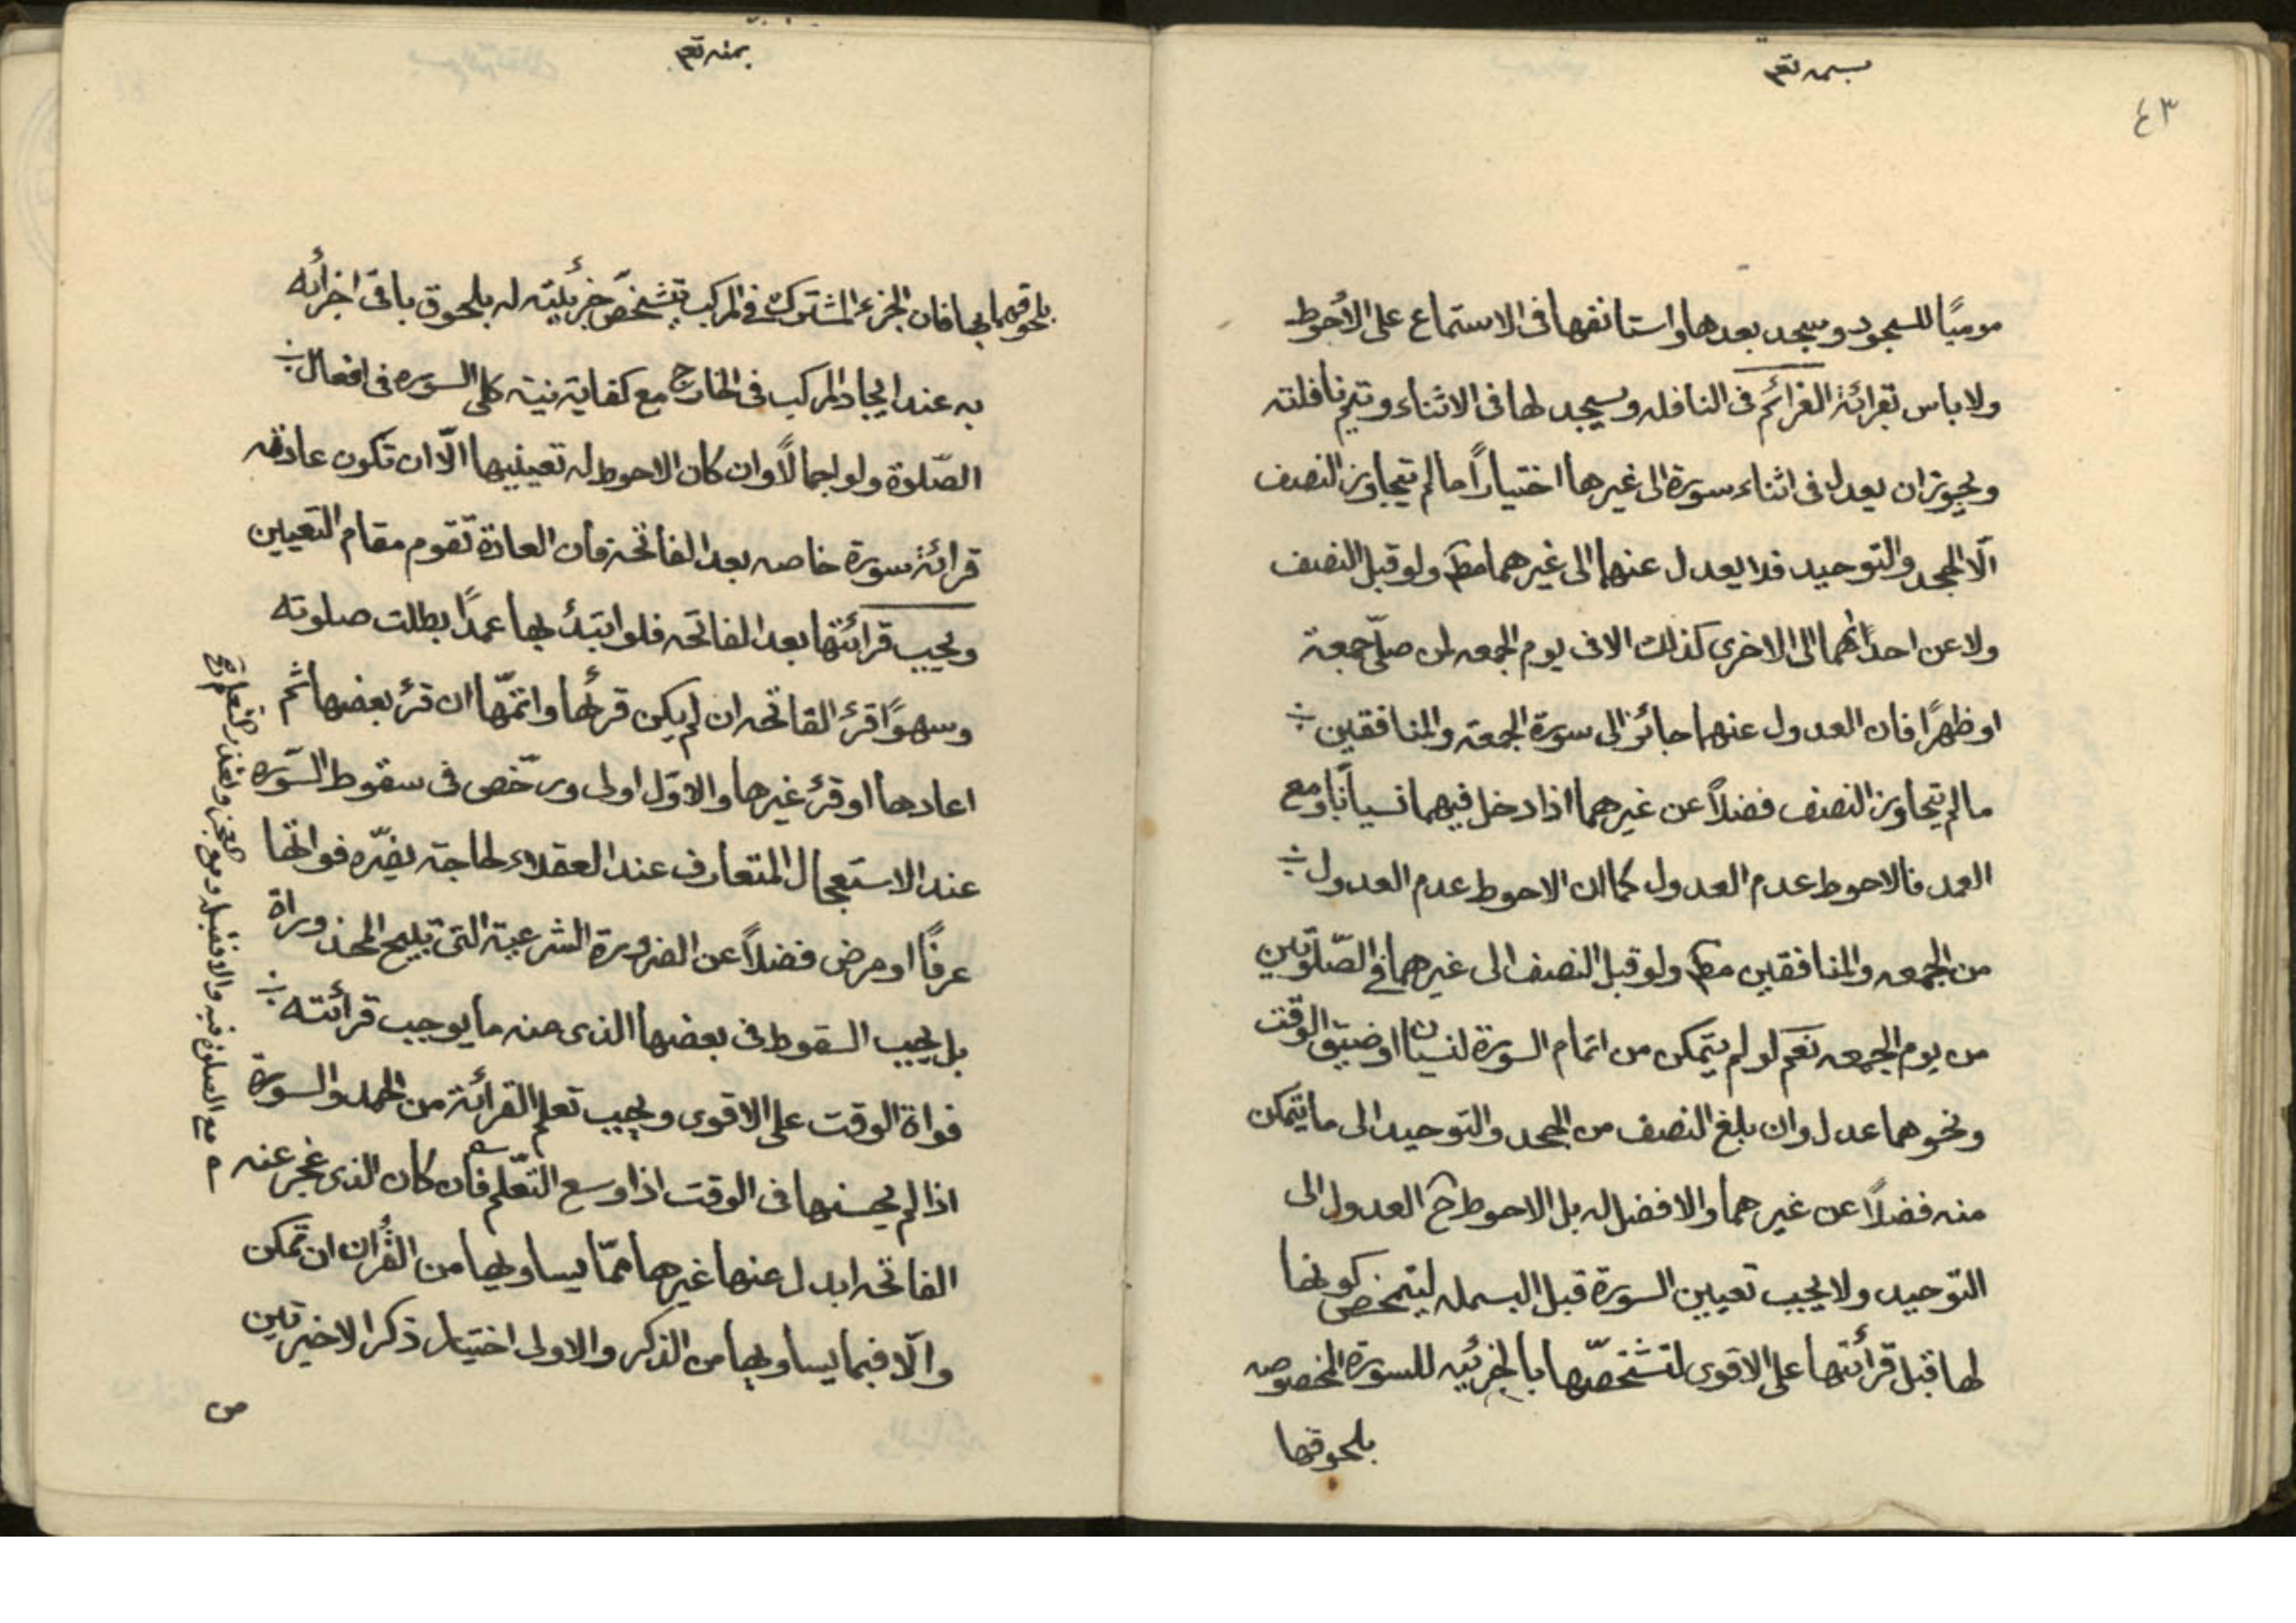 بسمه تعم
٤٣
موميًا للسجود ويسجد بعدها واستانفها فى الاستماع على الأحوط
ولا باس بقرائة الغرائم فى النافله ويسجد لها فى الاثناء ويتم نافلته
ويجوز ان يعدل فى اثناء سورة الى غيرها اختيارًا ما لم يتجاوز النصف
الّا الجحد والتوحيد فلا يعدل عنهما الى غيرهما مطم ولو قبل النصف
ولا عن احداهما الى الاخرى كذلك الا فى يوم الجمعه لمن صلّى جمعة
او ظهرًا فان العدول عنهما جائز الى سورة الجمعة والمنافقين
ما لم يتجاوز النصف فضلاً عن غيرهما اذا دخل فيهما نسيانًا ومع
العمد فالاحوط عدم العدول كما ان الاحوط عدم العدول
من الجمعه والمنافقين مطم ولو قبل النصف الى غيرهما فى الصّلوتين
من يوم الجمعه نعم لو لم يتمكن من اتمام السورة لنسيان او ضيق الوقت
ونحوهما عدل وان بلغ النصف من الجحد والتوحيد الى ما يتمكن
منه فضلاً عن غيرهما والافضل له بل الاحوط ح العدول الى
التوحيد ولا يجب تعيين السورة قبل البسمله ليتمخض كونها
لها قبل قرأئتها على الاقوى لتشخصّها بالجزئيه للسورة المخصوصه
بلحوقها
بسمه تعم
بلحوقهما بها فان الجزء المشترك فى المركب يتشخصّ جزئيته له بلحوق باقى اجزائه
به عند ايجاد المركب فى الخارج مع كفاية نية كلى السوره فى افعال
الصّلوة ولو اجمالاً وان كان الاحوط له تعيينيها الّا ان تكون عادته
قرائة سورة خاصه بعد الفاتحة فان العادة تقوم مقام التعيين
ويجب قرائتها بعد الفاتحه فلو ابتدئ بها عمدًا بطلت صلوته
وسهوًا قرئ الفاتحه ان لم يكن قرئها واتمّها ان قرئ بعضها ثم
اعادها او قرئ غيرها والاوّل اولى ورخّص فى سقوط السّوره
عند الاستعجال المتعارف عند العقلاء لحاجة يضرّه فواتها
عرفًا او مرض فضلاً عن الضرورة الشرعية التى تبيح المحذوراة
بل يجب السقوط فى بعضها الذى منه ما يوجب قرائته
فواة الوقت على الاقوى ويجب تعلم القرائة من الحمد والسورة
اذا لم يحسنها فى الوقت اذا وسع التعّلم فان كان الذى عجز عنه
الفاتحه ابدل عنها غيرها ممّا يساويها من القرأن ان تمكن
والّا فبما يساويها من الذكر والاولى اختيار ذكر الاخيرتين
من
مع الصلوة فيه والا فقبله ومع العجز وتعذر التعلم